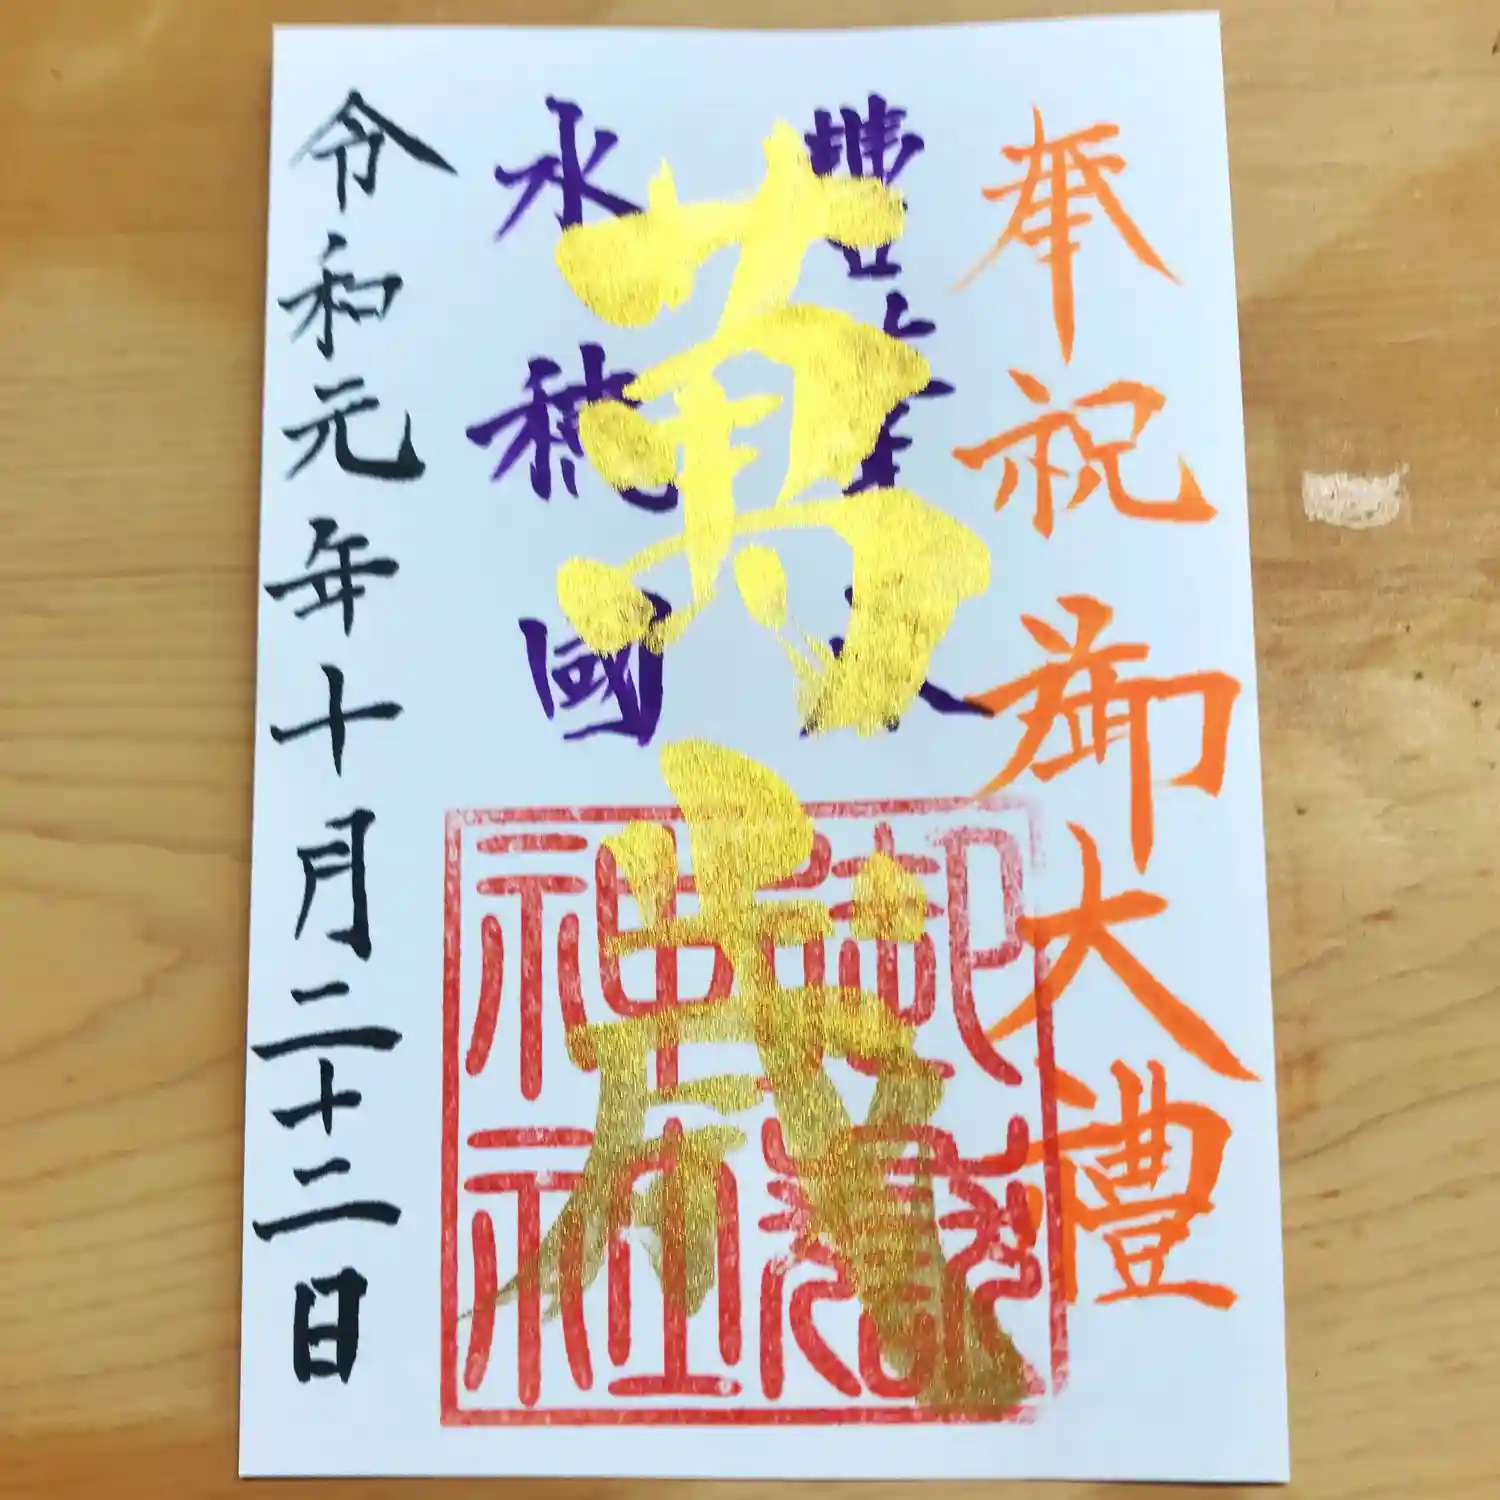 奉祝御大禮
豐
萬歳
水穂國
御
神社
令和元年十月二十二日